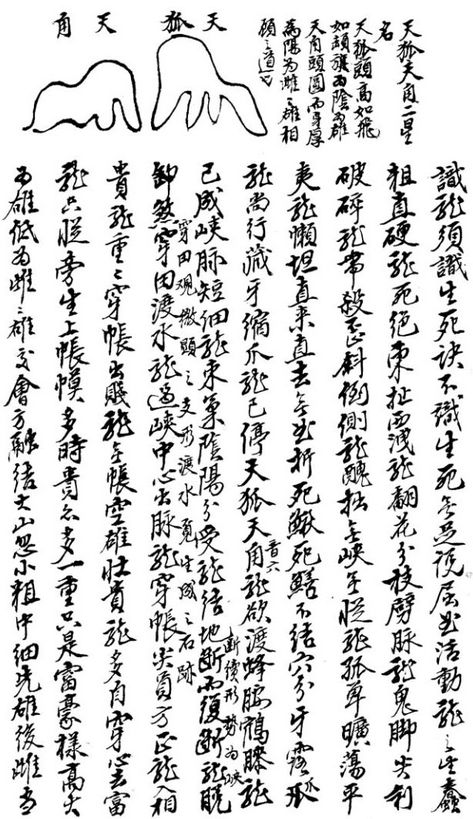 天狐
天角
天狐天角二星
名
天狐頭高如飛
如頭旗為陰為雄
天角頭圓而身厚
為陽為雌雌雄相
顧之道也
識龍須識生死訣不識生死無足說屈曲活動龍之生蠢
粗直硬龍死絕東扯西洩龍翻花分枝劈脈龍鬼脚尖利
破碎龍帶殺歪斜倒側龍醜拙無峽無從龍孤單曠蕩平
夷龍懶坦直來直去無曲折死鰍死鱔不結穴分牙露爪
龍尚行藏牙縮爪龍已停天狐天角龍欲渡蜂腰鶴膝龍
音六
已成峽脈短細龍束氣陰陽分受龍結地斷而復斷龍脫
斷續形勢為峽
穿田觀撒頭之支形渡水覓生成之石跡
卸然穿田渡水龍過峽中心出脈龍穿帳尖員方正龍入相
貴龍重之穿帳出賤龍無帳空雄壯貴龍多自穿心去富
龍只從旁生上帳幙多時貴亦多一重只是富豪樣高大
為雄低為雌雌雄交會方融結大山忽小粗中細先雄後雌當